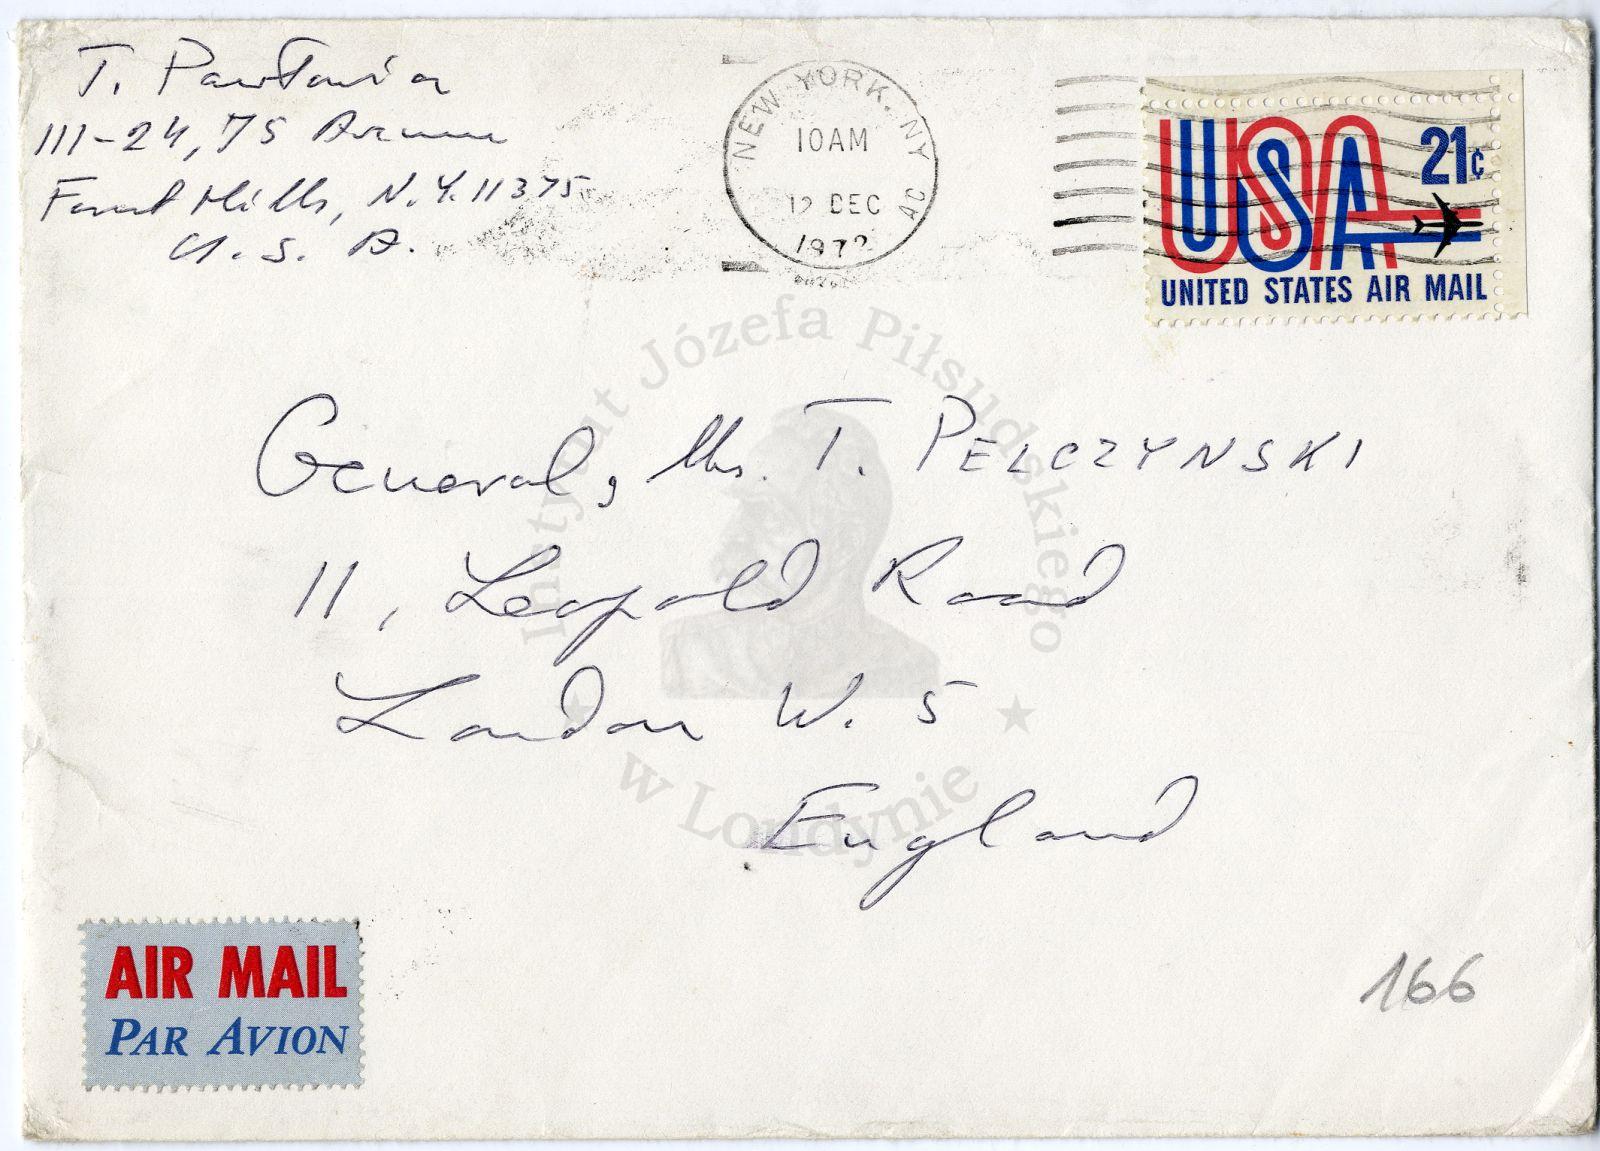 T. Pawłowicz
111-24, 75 Avenue
Forest Hills, N.Y. 11375
U. S. A.
NEW YORK, NY AC
10AM
12 DEC
1972
USA 21¢
UNITED STATES AIR MAIL
General, Mrs. T. PELCZYNSKI
11, Leopold Road
London W. 5
England
Instytut Józefa Piłsudskiego
w Londynie
AIR MAIL
PAR AVION
166